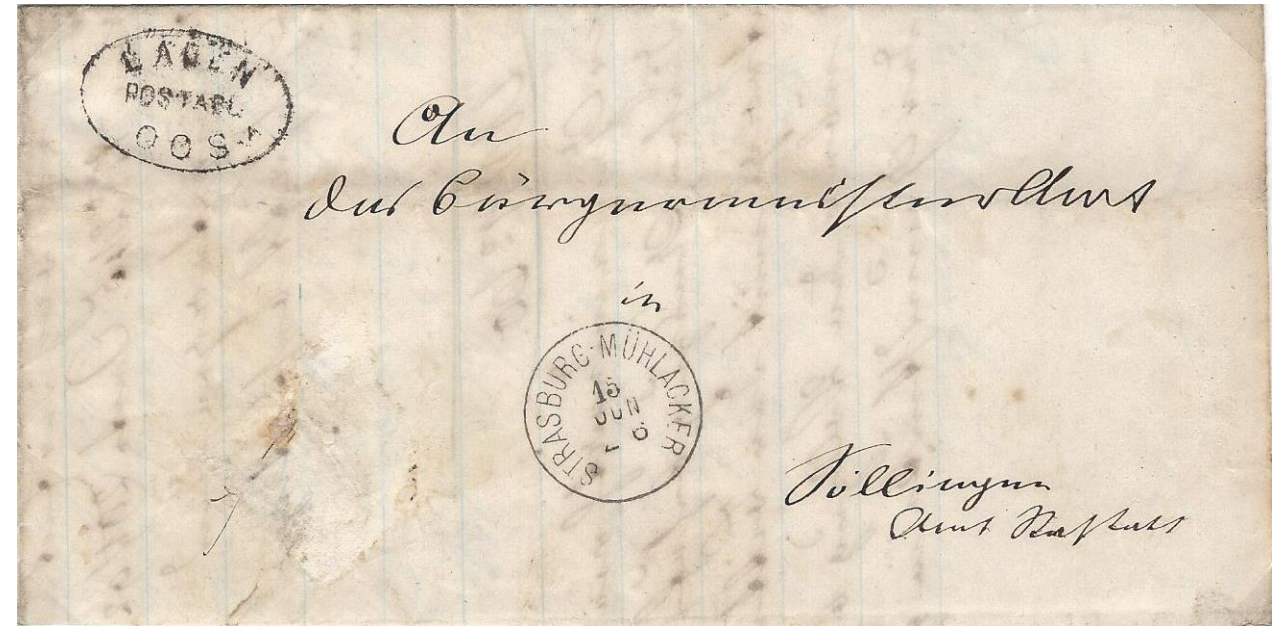 BADEN
POSTABL.
OOS
An
das Bürgermeister Amt
in
STRASBURG-MÜHLACKER
15
JUN
Söllingen
Amt Rastatt